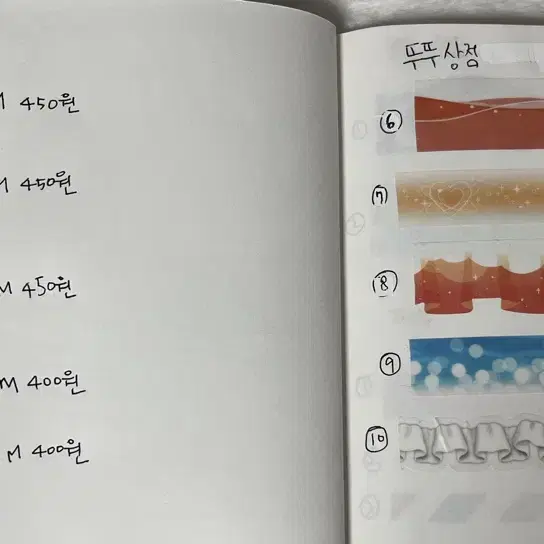 M 450원
M 450원
M 450원
M 400원
M 400원
뚜뚜상점
⑥
⑦
⑧
⑨
⑩